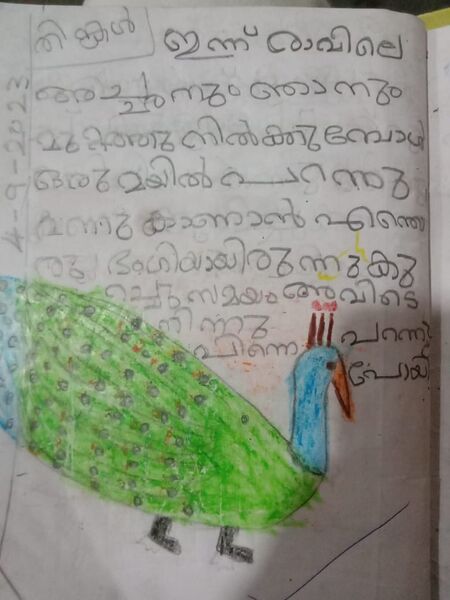 4-9-2023
തിങ്കൾ
ഇന്ന് രാവിലെ
അച്ചനും ഞാനും
മുറ്റത്തു നിൽക്കുമ്പോൾ
ഒരു മയിൽ പറന്നു
വന്നു കാണാൻ എന്തൊ
രു ഭംഗിയായിരുന്നു കു
ച്ചുസമയം അവിടെ
നിന്നു
പിന്നെ പറന്നു
പോയി